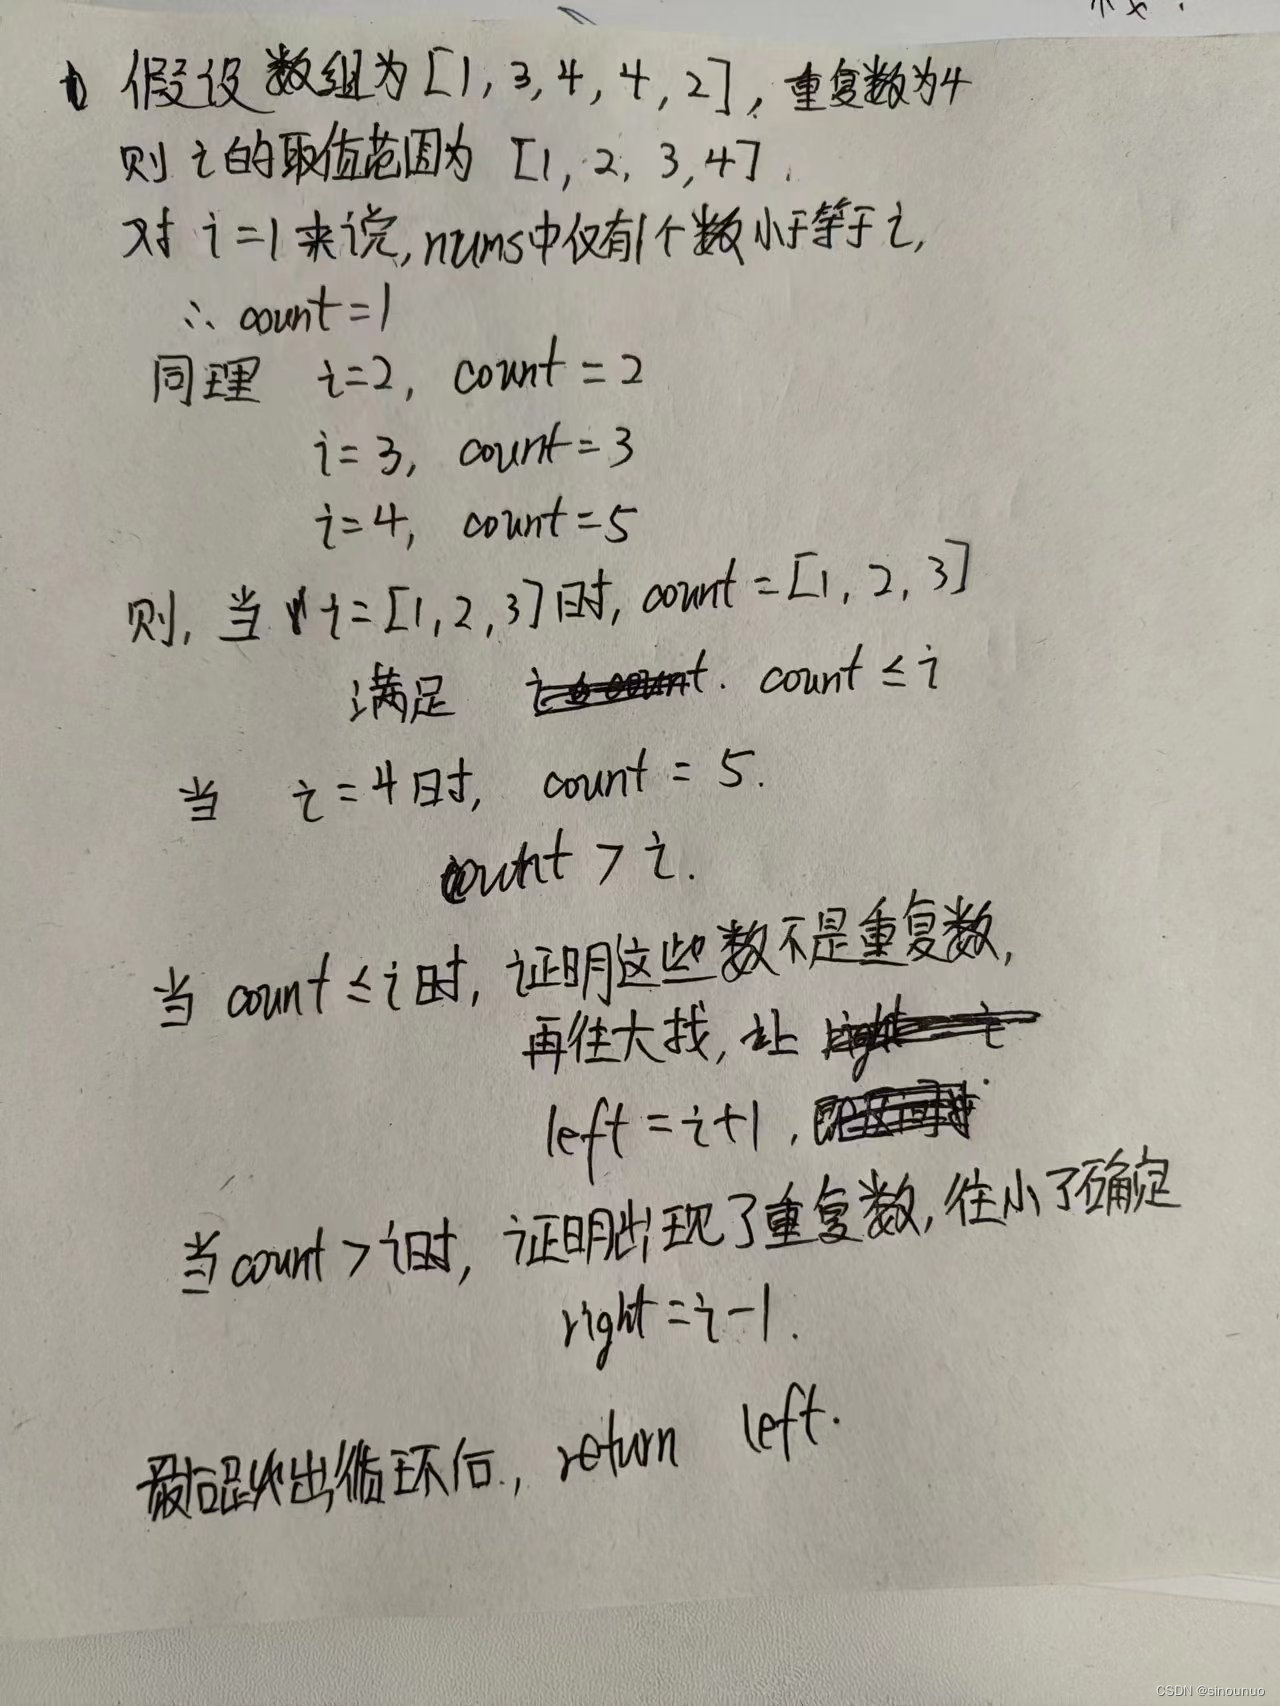 假设数组为[1,3,4,4,2],重复数为4
则 i的取值范围为 [1,2,3,4].
对 i=1来说,nums中仅有1个数小于等于i,
∴ count=1
同理 i=2, count=2
i=3, count=3
i=4, count=5
则,当 i=[1,2,3]时,count=[1,2,3]
满足 count≤i
当 i=4时, count=5.
count>i.
当 count≤i时,证明这些数不是重复数,
再往大找,让
left=i+1,
当count>i时,证明出现了重复数,往小了确定
right=i-1.
最后跳出循环后,return left.
CSDN @sinounuo